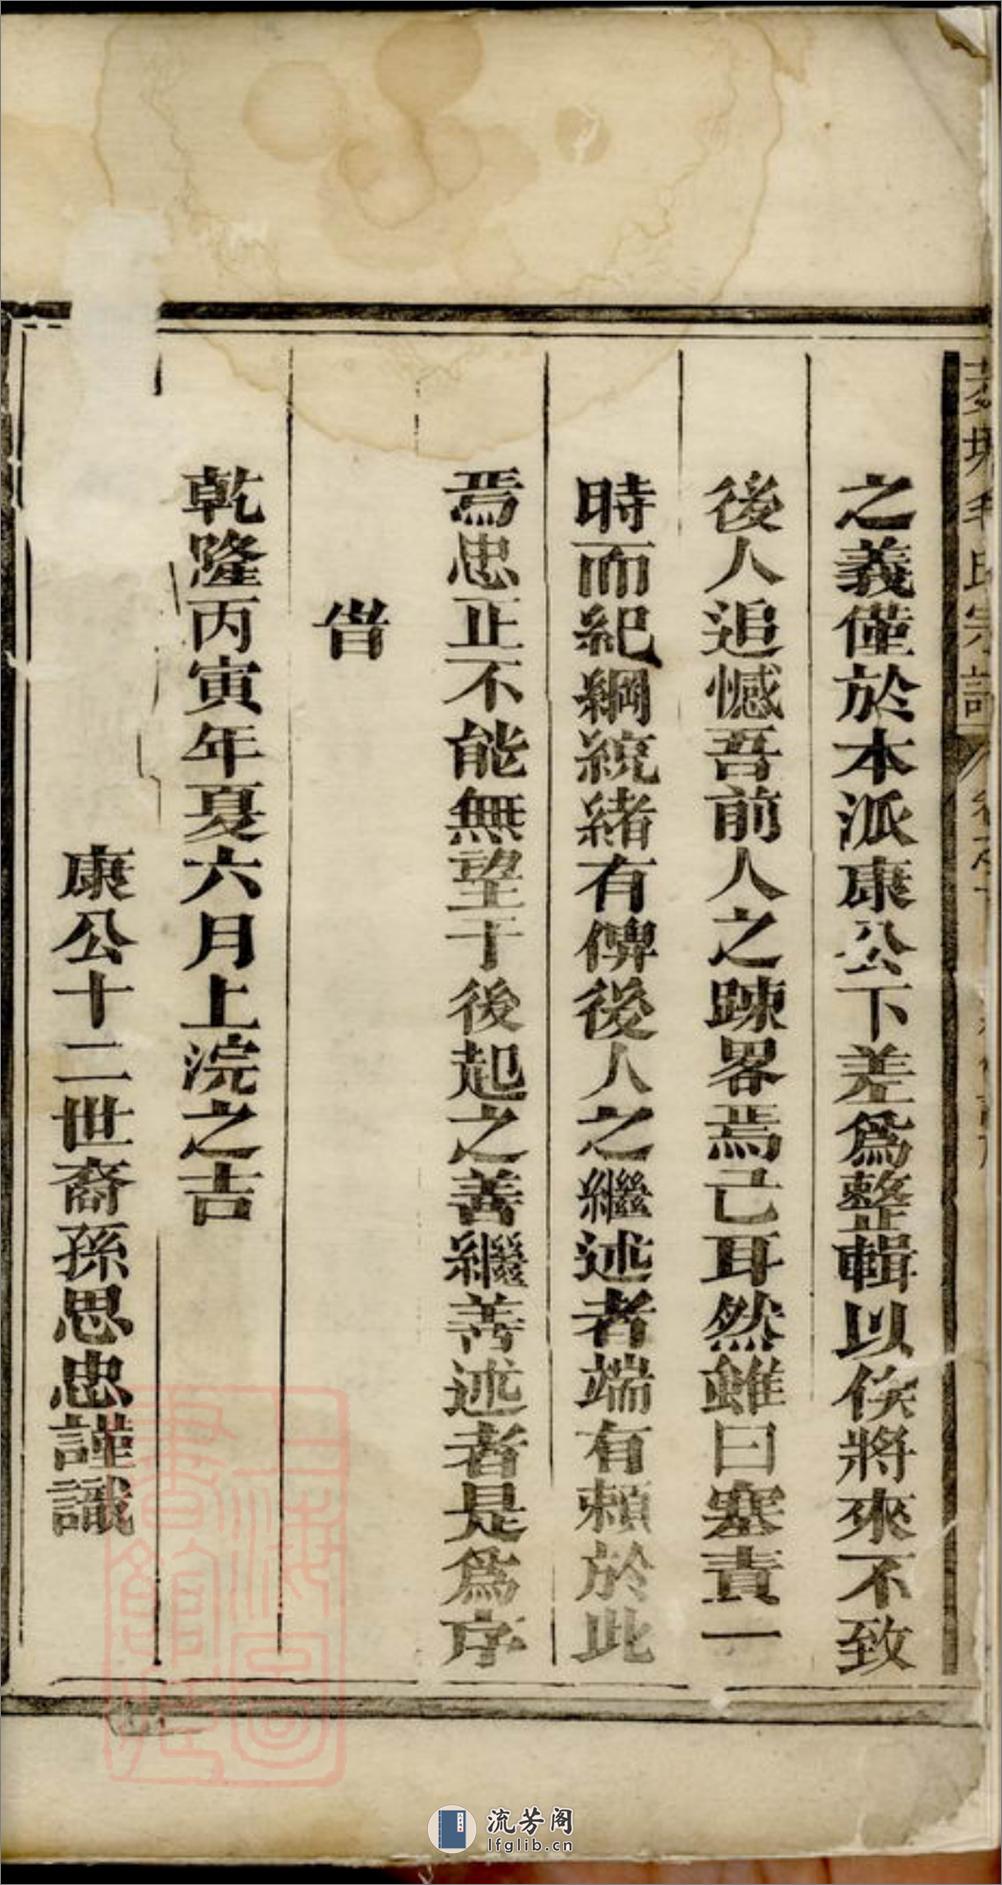 之義僅於本派康公下差爲整輯以俟將來不致
後人追憾吾前人之踈畧焉已耳然雖曰塞責一
時而紀綱統緒有俾後人之繼述者端有頼於此
焉忠正不能無望于後起之善繼善述者是爲序
旹
乾隆丙寅年夏六月上浣之吉
康公十二世裔孫思忠謹識
上海圖書館藏
流芳阁
lfglib.cn